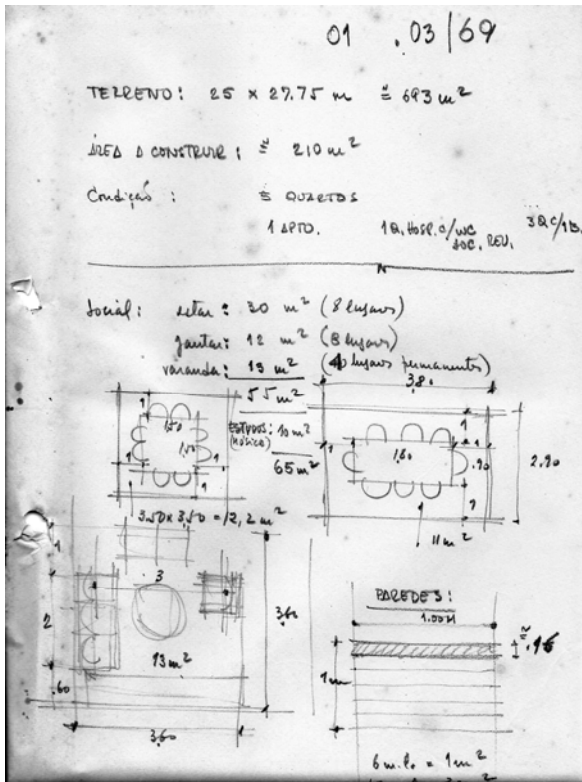 01 .03/69
TERRENO: 25 × 27.75 m ≅ 693 m²
ÁREA A CONSTRUIR: ≅ 210 m²
Condição: 5 QUARTOS
1 APTO. 1 Q. HOSP. C/WC SOC. REV. 3 Q C/1 B.
Social: estar: 30 m² (8 lugares)
jantar: 12 m² (8 lugares)
varanda: 13 m² (10 lugares permanentes)
55 m²
ESTUDOS: 10 m²
(MÚSICA)
65 m²
1
1,50
1,50
1
1
1
3.50 × 3,50 = 12,2 m²
3.80
1
1
1
1,80
.90
1
2.90
11 m²
1
3
2
13 m²
.60
3,60
3,60
1
PAREDES:
1.00 M
≅ .15
1m
6 m.l. = 1 m²